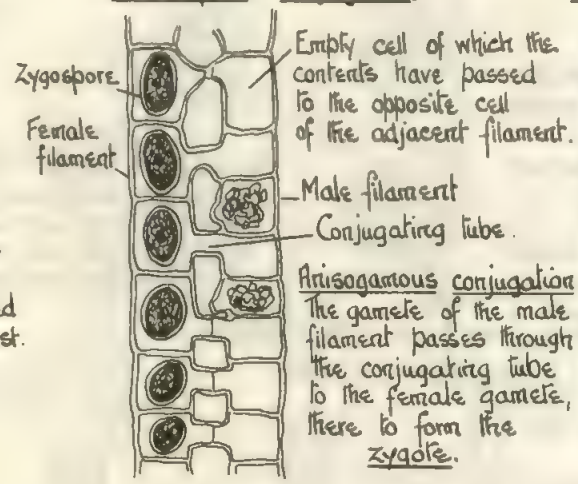 Zygospore
Female
filament
Empty cell of which the
contents have passed
to the opposite cell
of the adjacent filament.
Male filament
Conjugating tube.
Anisogamous conjugation
The gamete of the male
filament passes through
the conjugating tube
to the female gamete,
there to form the
zygote.
st.